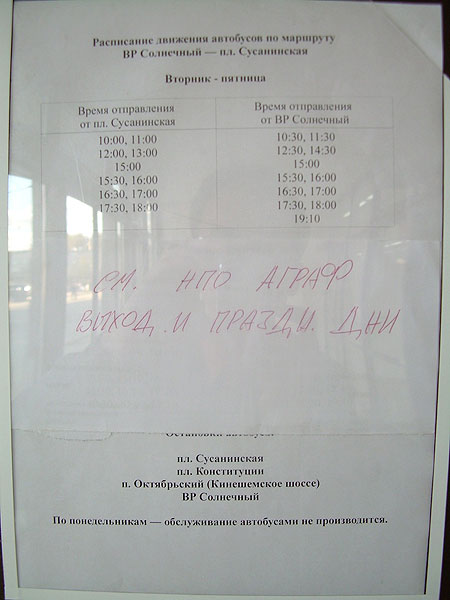 Расписание движения автобусов по маршруту
ВР Солнечный — пл. Сусанинская
Вторник - пятница
Время отправления
от пл. Сусанинская
10:00, 11:00
12:00, 13:00
15:00
15:30, 16:00
16:30, 17:00
17:30, 18:00
Время отправления
от ВР Солнечный
10:30, 11:30
12:30, 14:30
15:00
15:30, 16:00
16:30, 17:00
17:30, 18:00
19:10
СМ. НПО АГРАФ
ВЫХОД. И ПРАЗДН. ДНИ
Остановки автобуса:
пл. Сусанинская
пл. Конституции
п. Октябрьский (Кинешемское шоссе)
ВР Солнечный
По понедельникам — обслуживание автобусами не производится.